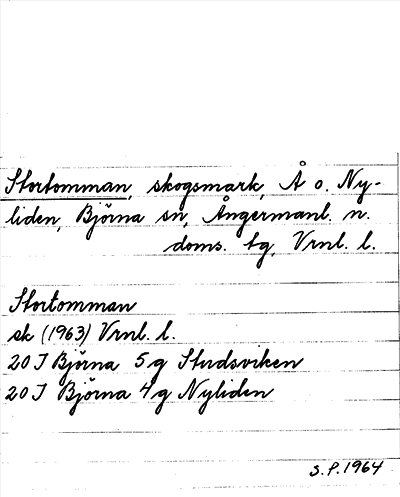 Stortomman, skogsmark, Å o. Ny-
liden, Björna sn, Ångermanl. n.
doms. tg, Vrnl. l.
Stortomman
sk (1963) Vrnl. l.
20 J Björna 5 g Studsviken
20 J Björna 4 g Nyliden
S.P. 1964